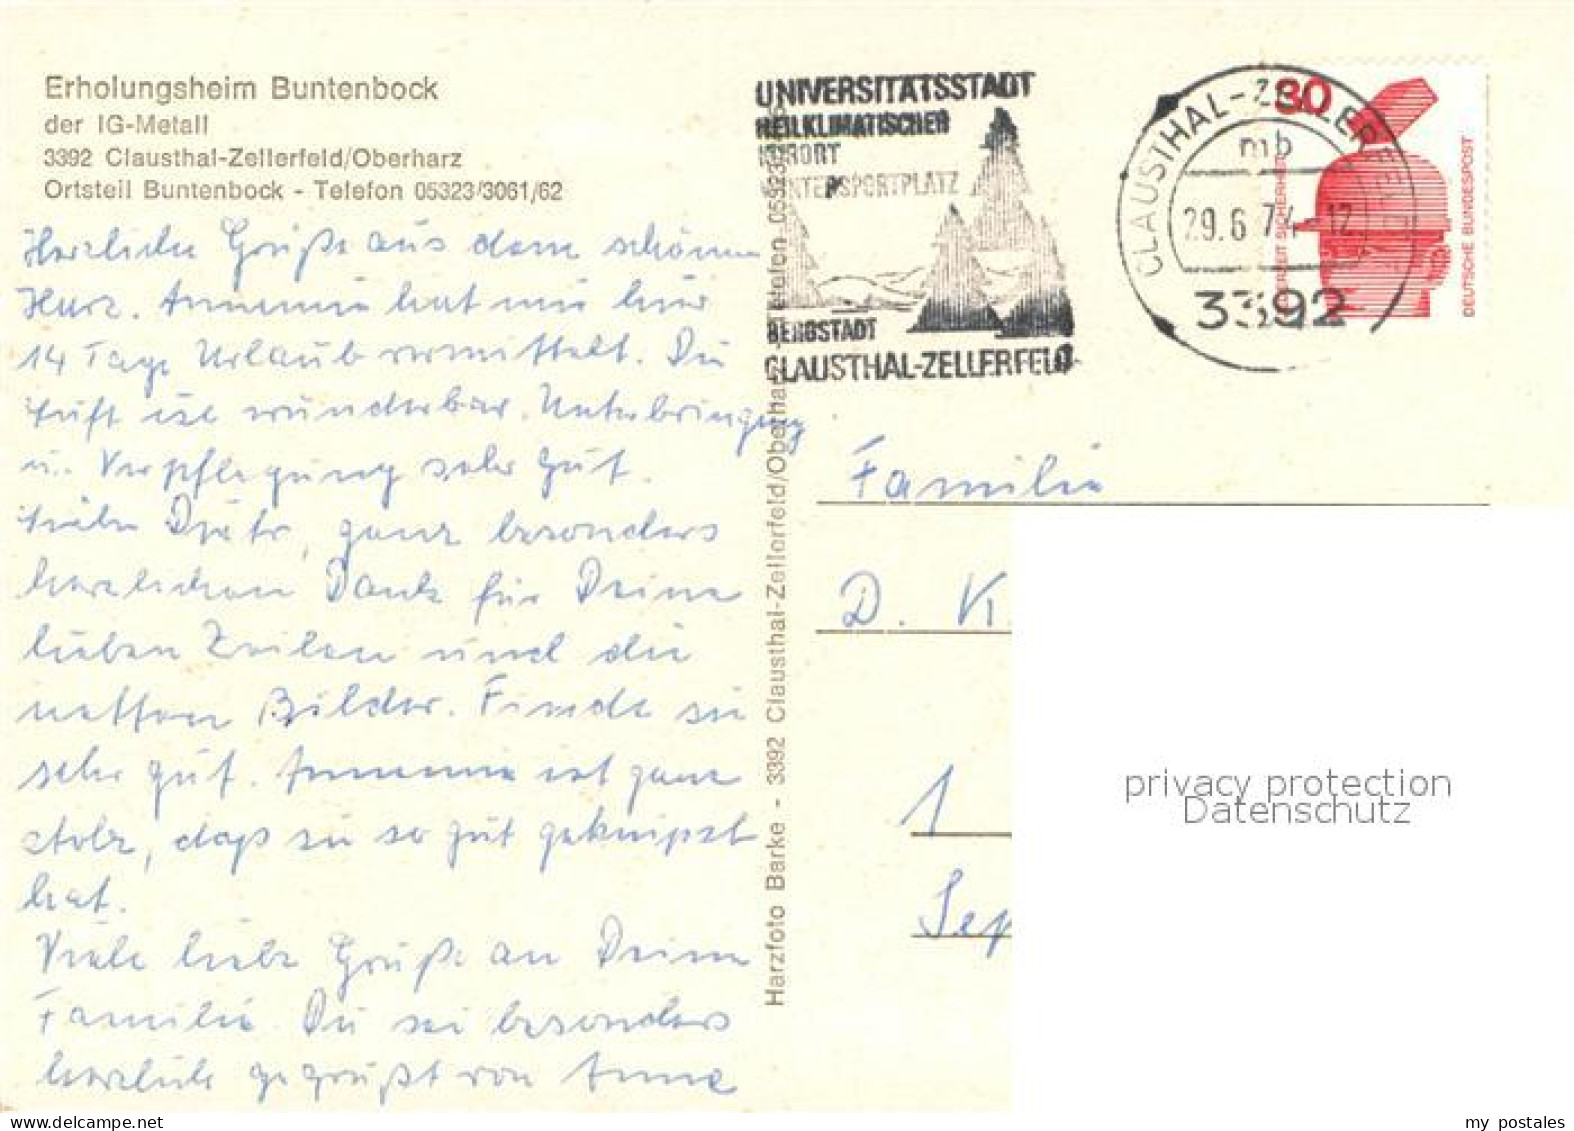 Erholungsheim Buntenbock
der IG-Metall
3392 Clausthal-Zellerfeld/Oberharz
Ortsteil Buntenbock - Telefon 05323/3061/62
Herzliche Grüße aus dem schönen
Harz. Annemie hat mir hier
14 Tage Urlaub vermittelt. Die
Luft ist wunderbar. Unterbringung
u. Verpflegung sehr gut.
Liebe Dieter, ganz besonders
herzlichen Dank für Deine
lieben Zeilen und die
netten Bilder. Finde sie
sehr gut. Annemie ist ganz
stolz, daß sie so gut geknipst
hat.
Viele liebe Grüße an Deine
Familie. Du sei besonders
herzlich gegrüßt von Anne
Harzfoto Barke - 3392 Clausthal-Zellerfeld/Oberharz - Telefon 05323
UNIVERSITÄTSSTADT
HEILKLIMATISCHER
KURORT
WINTERSPORTPLATZ
BERGSTADT
CLAUSTHAL-ZELLERFELD
CLAUSTHAL-ZELLERFELD
mb
29.6.74-12
3392
30
JEDERZEIT SICHERHEIT
DEUTSCHE BUNDESPOST
Familie
D. K
1
Sep
privacy protection
Datenschutz
www.delcampe.net
my postales